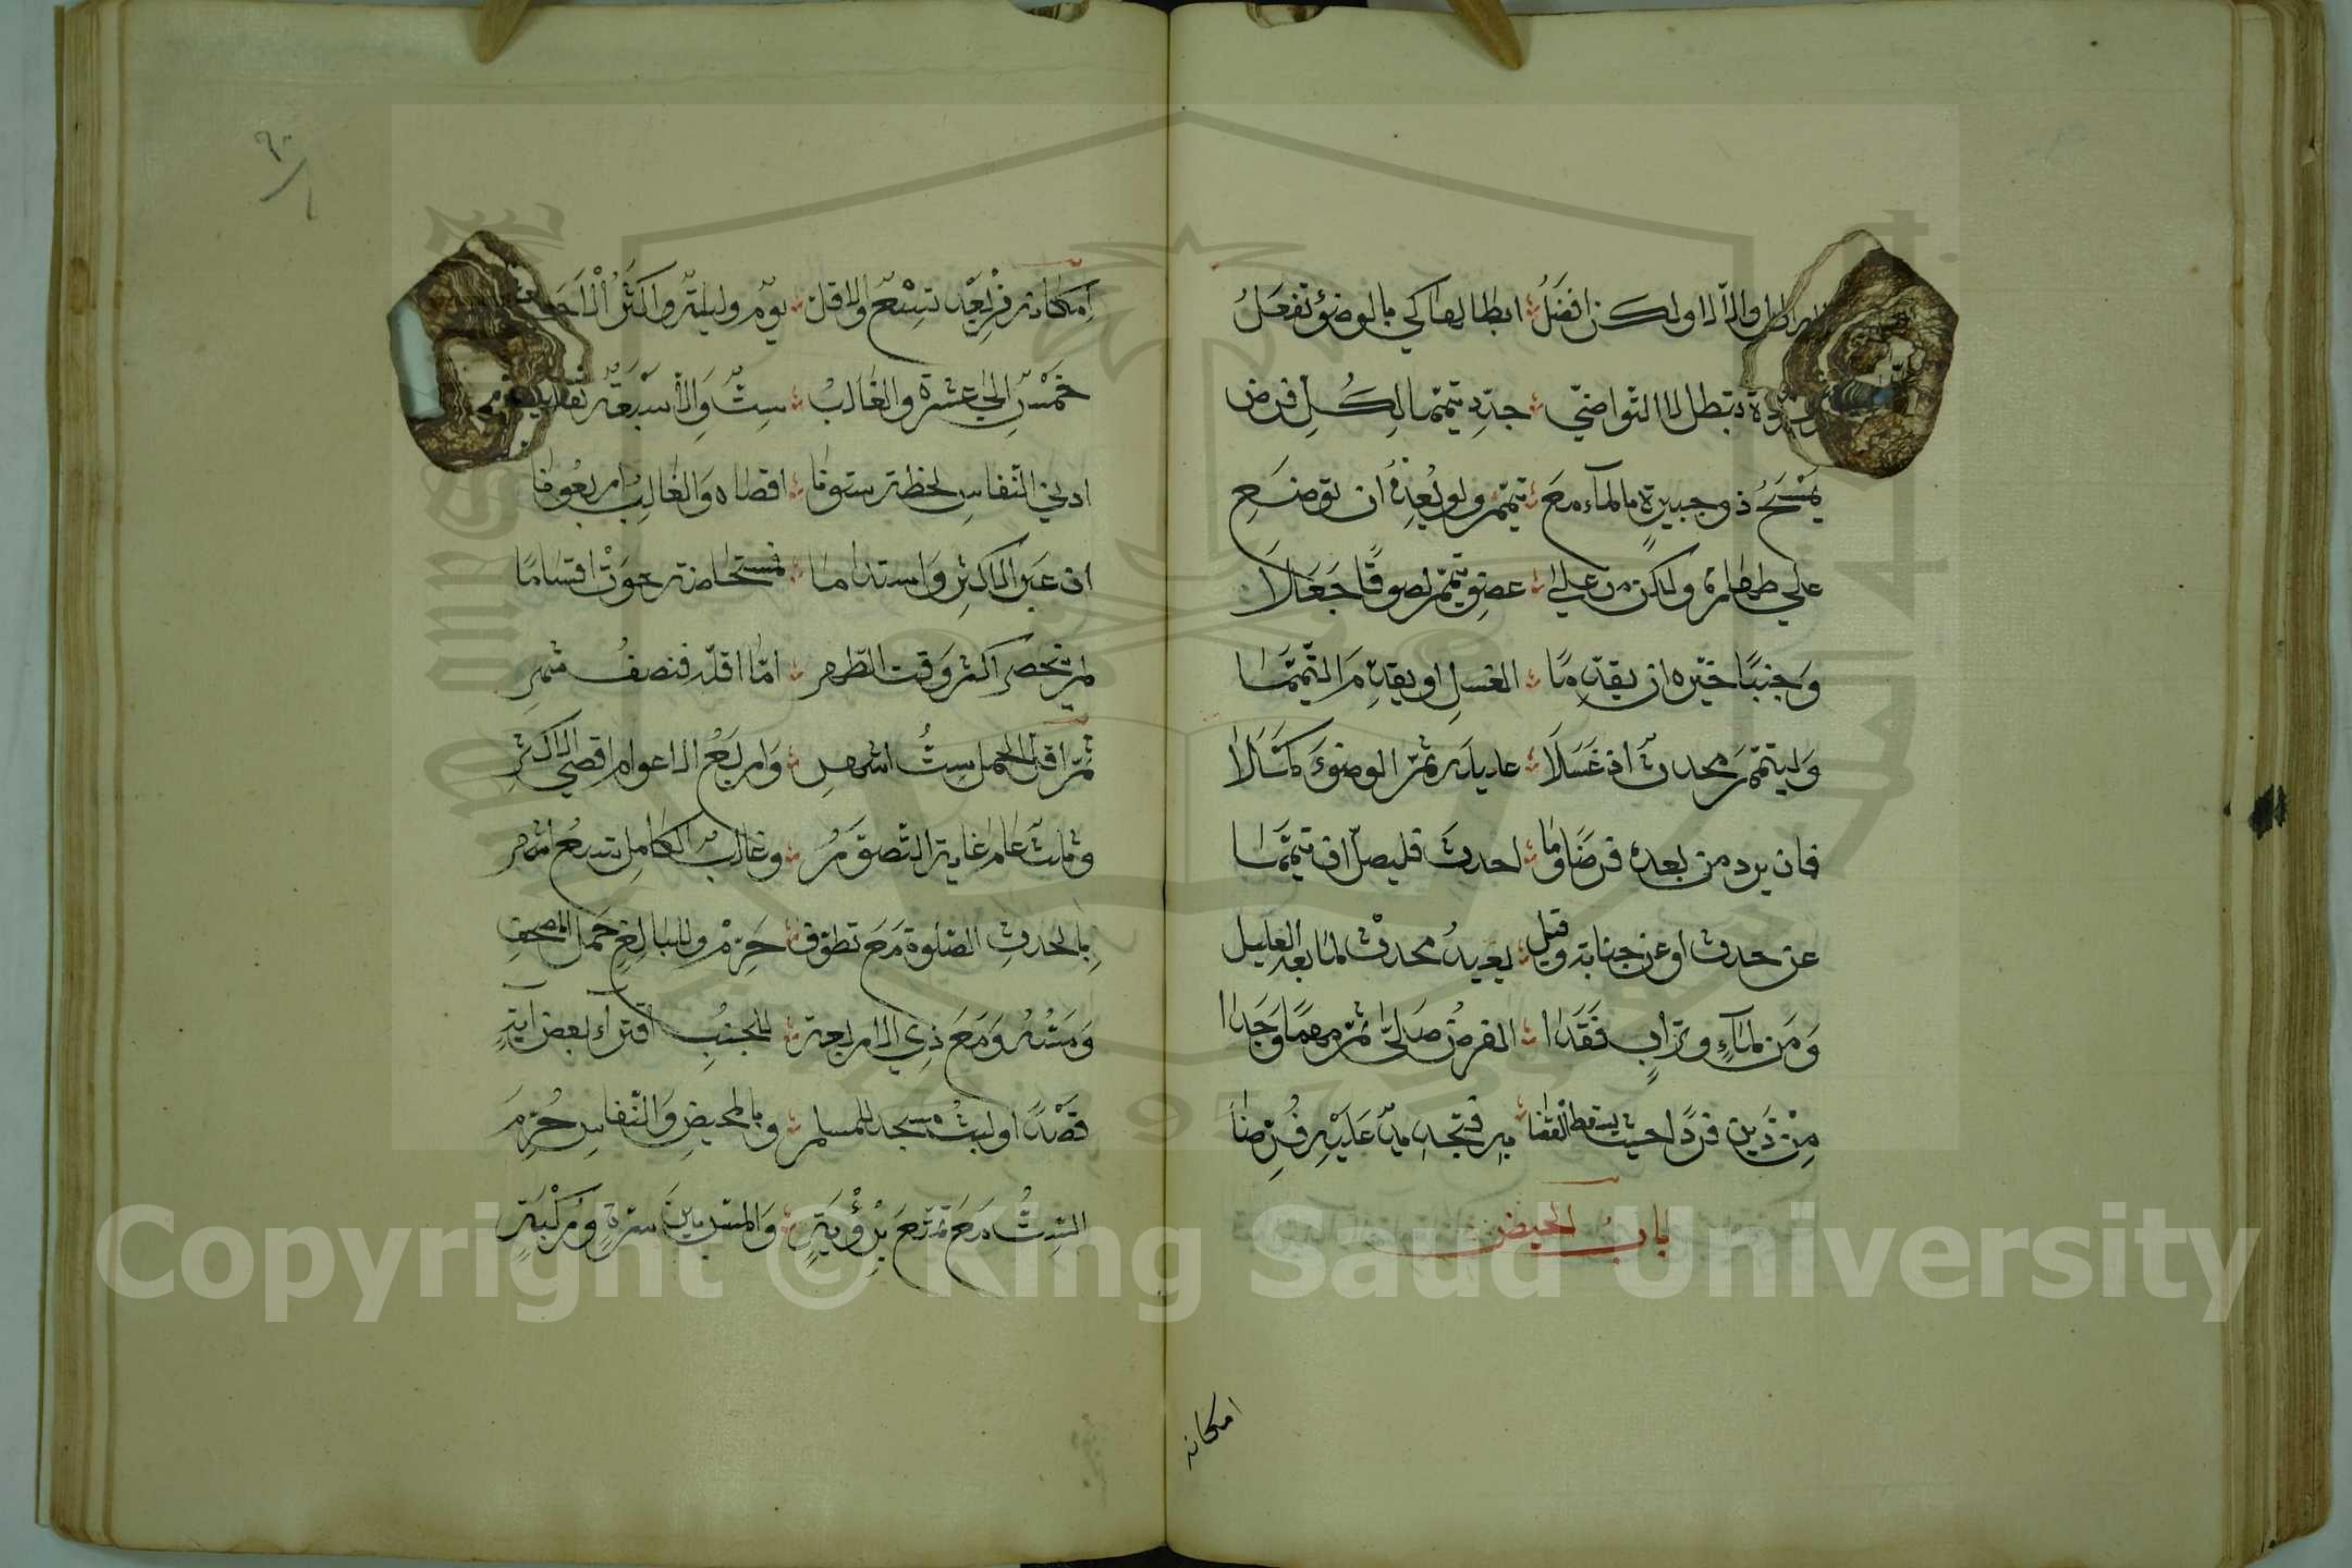 ابطل والا لا ولكن افضل ؞ ابطالها كي بالوضوء تفعل
وردة تبطل لا التواضي ؞ جدد تيمما لكل فرض
يمسح ذو جبيرة بالماء مع ؞ تيمم ولم يعد ان توضع
على طهارة ولكن من على ؞ عضو تيمم لصوقا جعلا
وجنبا خيره ان يقدما ؞ الغسل او يقدم التيمما
وليتيمم محدث اذ غسلا ؞ عليله ثم الوضوء كملا
فان يرد من بعده فرضا وما ؞ احدث فليصل ان تيمما
عن حدث او عن جنابة وقيل ؞ يعيد محدث لما بعد العليل
ومن لماء وتراب فقدا ؞ الفرض صلى ثم مهما وجدا
من ذين فردا حيث يسقط القضا ؞ به فتجديد عليه فرضا
باب الحيض
امكانه
٩٠
امكانه من بعد تسع والاقل ؞ يوم وليلة واكثر الاجل
خمس الى عشرة والغالب ؞ ست والا سبعة تقارب
ادنى النفاس لحظة ستونا ؞ اقصاه والغالب اربعونا
ان عبر الاكثر واستداما ؞ فمستحاضة حوت اقساما
لم ينحصر اكثر وقت الطهر ؞ اما اقله فنصف شهر
ثم اقل الحمل ست اشهر ؞ واربع الاعوام اقصى الاكثر
وثلث عام غاية التصور ؞ وغالب الكامل تسع اشهر
بالحدث الصلوة مع تطوف ؞ حرم وللبالغ حمل المصحف
ومسه ومع ذي الاربعة ؞ للجنب اقتراء بعض اية
قصدا ولبث مسجد للمسلم ؞ وبالمحيض والنفاس حرم
الست مع تمتع برؤية ؞ واللمس بين سرة وركبة
Copyright © King Saud University